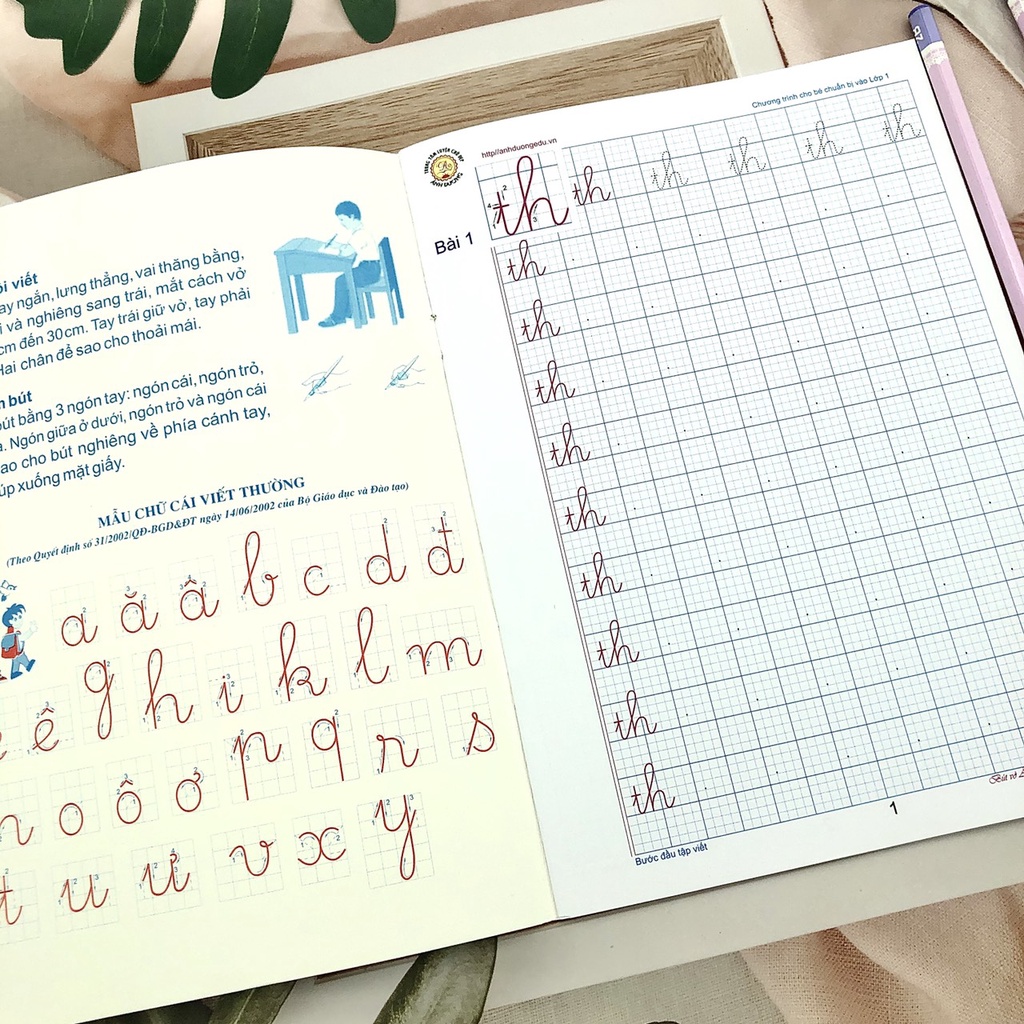 viết
tay ngắn, lưng thẳng, vai thăng bằng,
và nghiêng sang trái, mắt cách vở
cm đến 30cm. Tay trái giữ vở, tay phải
Hai chân để sao cho thoải mái.
bút
bút bằng 3 ngón tay: ngón cái, ngón trỏ,
Ngón giữa ở dưới, ngón trỏ và ngón cái
sao cho bút nghiêng về phía cánh tay,
úp xuống mặt giấy.
MẪU CHỮ CÁI VIẾT THƯỜNG
(Theo Quyết định số 31/2002/QĐ-BGD&ĐT ngày 14/06/2002 của Bộ Giáo dục và Đào tạo)
a ă â b c d đ
e ê g h i k l m
n o ô ơ p q r s
t u ư v x y
Chương trình cho bé chuẩn bị vào Lớp 1
http//anhduongedu.vn
TRUNG TÂM LUYỆN CHỮ ĐẸP
ÁNH DƯƠNG
Bài 1
th th th th th th
th
th
th
th
th
th
th
th
th
Bút vở
1
Bước đầu tập viết